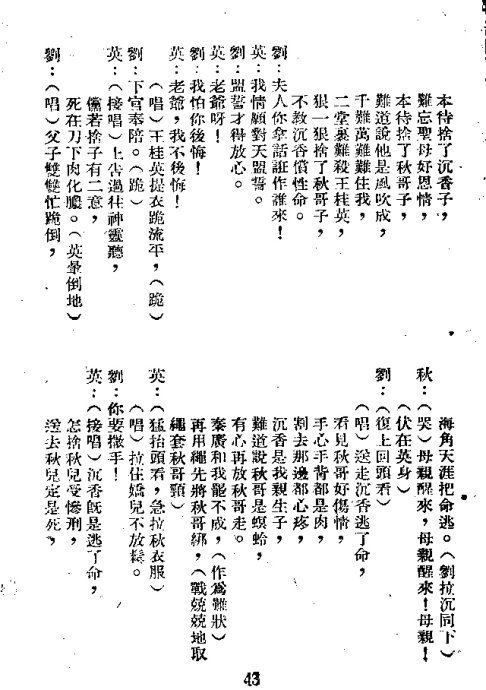 本待捨了沉香子，
難忘聖母好恩情，
本待捨了秋哥子，
難道說他是風吹成，
千難萬難難住我，
二堂裏難殺王桂英，
狠一狠捨了秋哥子，
不教沉香償性命。
劉：夫人你拿話誆作誰來！
英：我情願對天盟誓。
劉：盟誓才得放心。
英：老爺呀！
劉：我怕你後悔！
英：老爺，我不後悔！
（唱）王桂英提衣跪流平，（跪）
劉：下官奉陪。（跪）
英：（接唱）上告過往神靈聽，
儻若捨子有二意，
死在刀下肉化膿。（英暈倒地）
劉：（唱）父子雙雙忙跪倒，
海角天涯把命逃。（劉拉沉同下）
秋：（哭）母親醒來，母親醒來！母親！
（伏在英身）
劉：（復上回頭看）
（唱）送走沉香逃了命，
看見秋哥好傷情，
手心手背都是肉，
割去那邊都心疼，
沉香是我親生子，
難道說秋哥是螟蛉，
有心再放秋哥走。
秦賡和我罷不成，（作爲難狀）
再用繩先將秋哥綁，（戰兢兢地取
繩套秋哥頸）
英：（猛抬頭看，急拉秋衣服）
（唱）拉住嬌兒不放鬆。
劉：你要撒手！
英：（接唱）沉香既是逃了命，
怎捨秋兒受慘刑，
送去秋兒定是死，
43